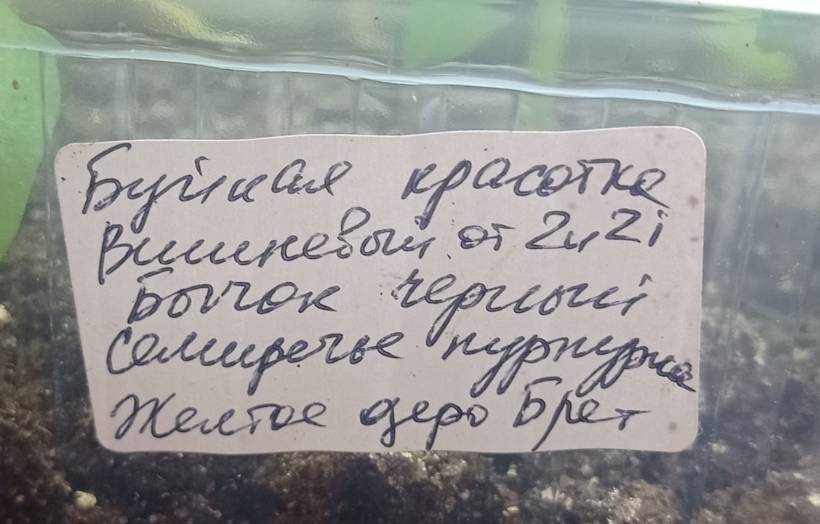 Буйная красотка
Вишневый от
Бычок черный
Семиречье пурпурна
Желтое деро Брет